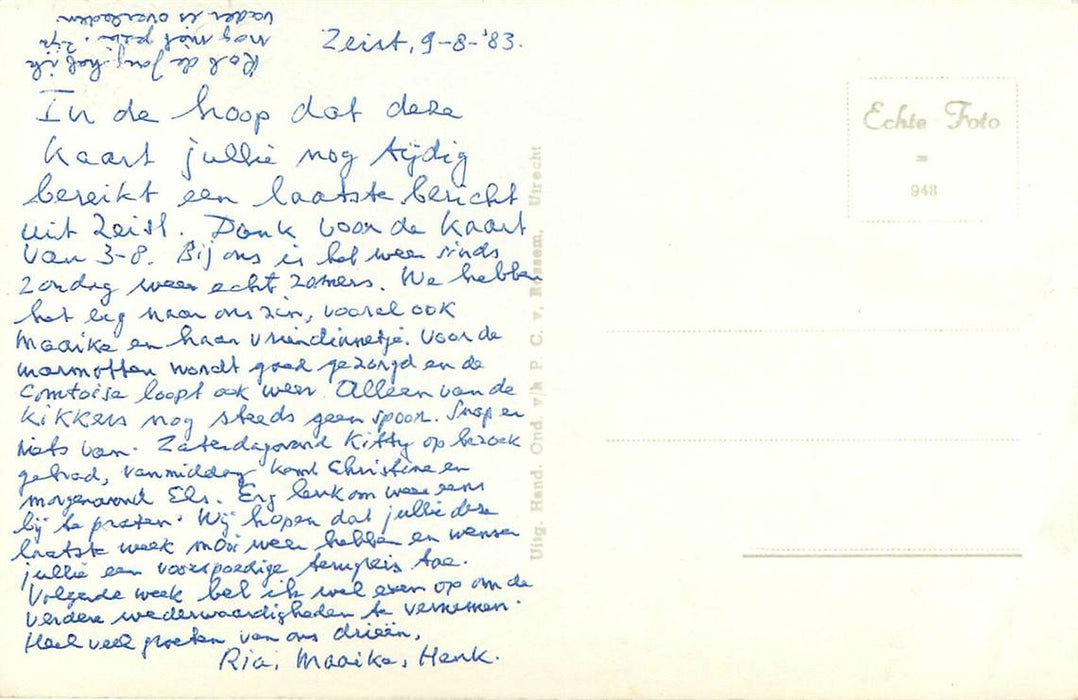 Zeist, 9-8-'83.
In de hoop dat deze
kaart jullie nog tijdig
bereikt een laatste bericht
uit Zeist. Dank voor de kaart
van 3-8. Bij ons is het weer sinds
zondag weer echt zomers. We hebben
het erg naar ons zin, vooral ook
Maaike en haar vriendinnetje. Voor de
marmotten wordt goed gezorgd en de
Comtoise loopt ook weer. Alleen van de
kikkers nog steeds geen spoor. Snap er
niets van. Zaterdagavond Kitty op bezoek
gehad, vanmiddag komt Christine en
morgenavond Els. Erg leuk om weer eens
bij te praten. Wij hopen dat jullie deze
laatste week mooi weer hebben en wensen
jullie een voorspoedige terugreis toe.
Volgende week bel ik wel even op om de
verdere wederwaardigheden te vernemen.
Heel veel groeten van ons drieën,
Ria, Maaike, Henk.
Rob de Jong heb ik
nog niet gezien. Zijn
vader is overleden.
Uitg. Hand. Ond. v/h P. C. v. Rossem, Utrecht
Echte Foto
=
948